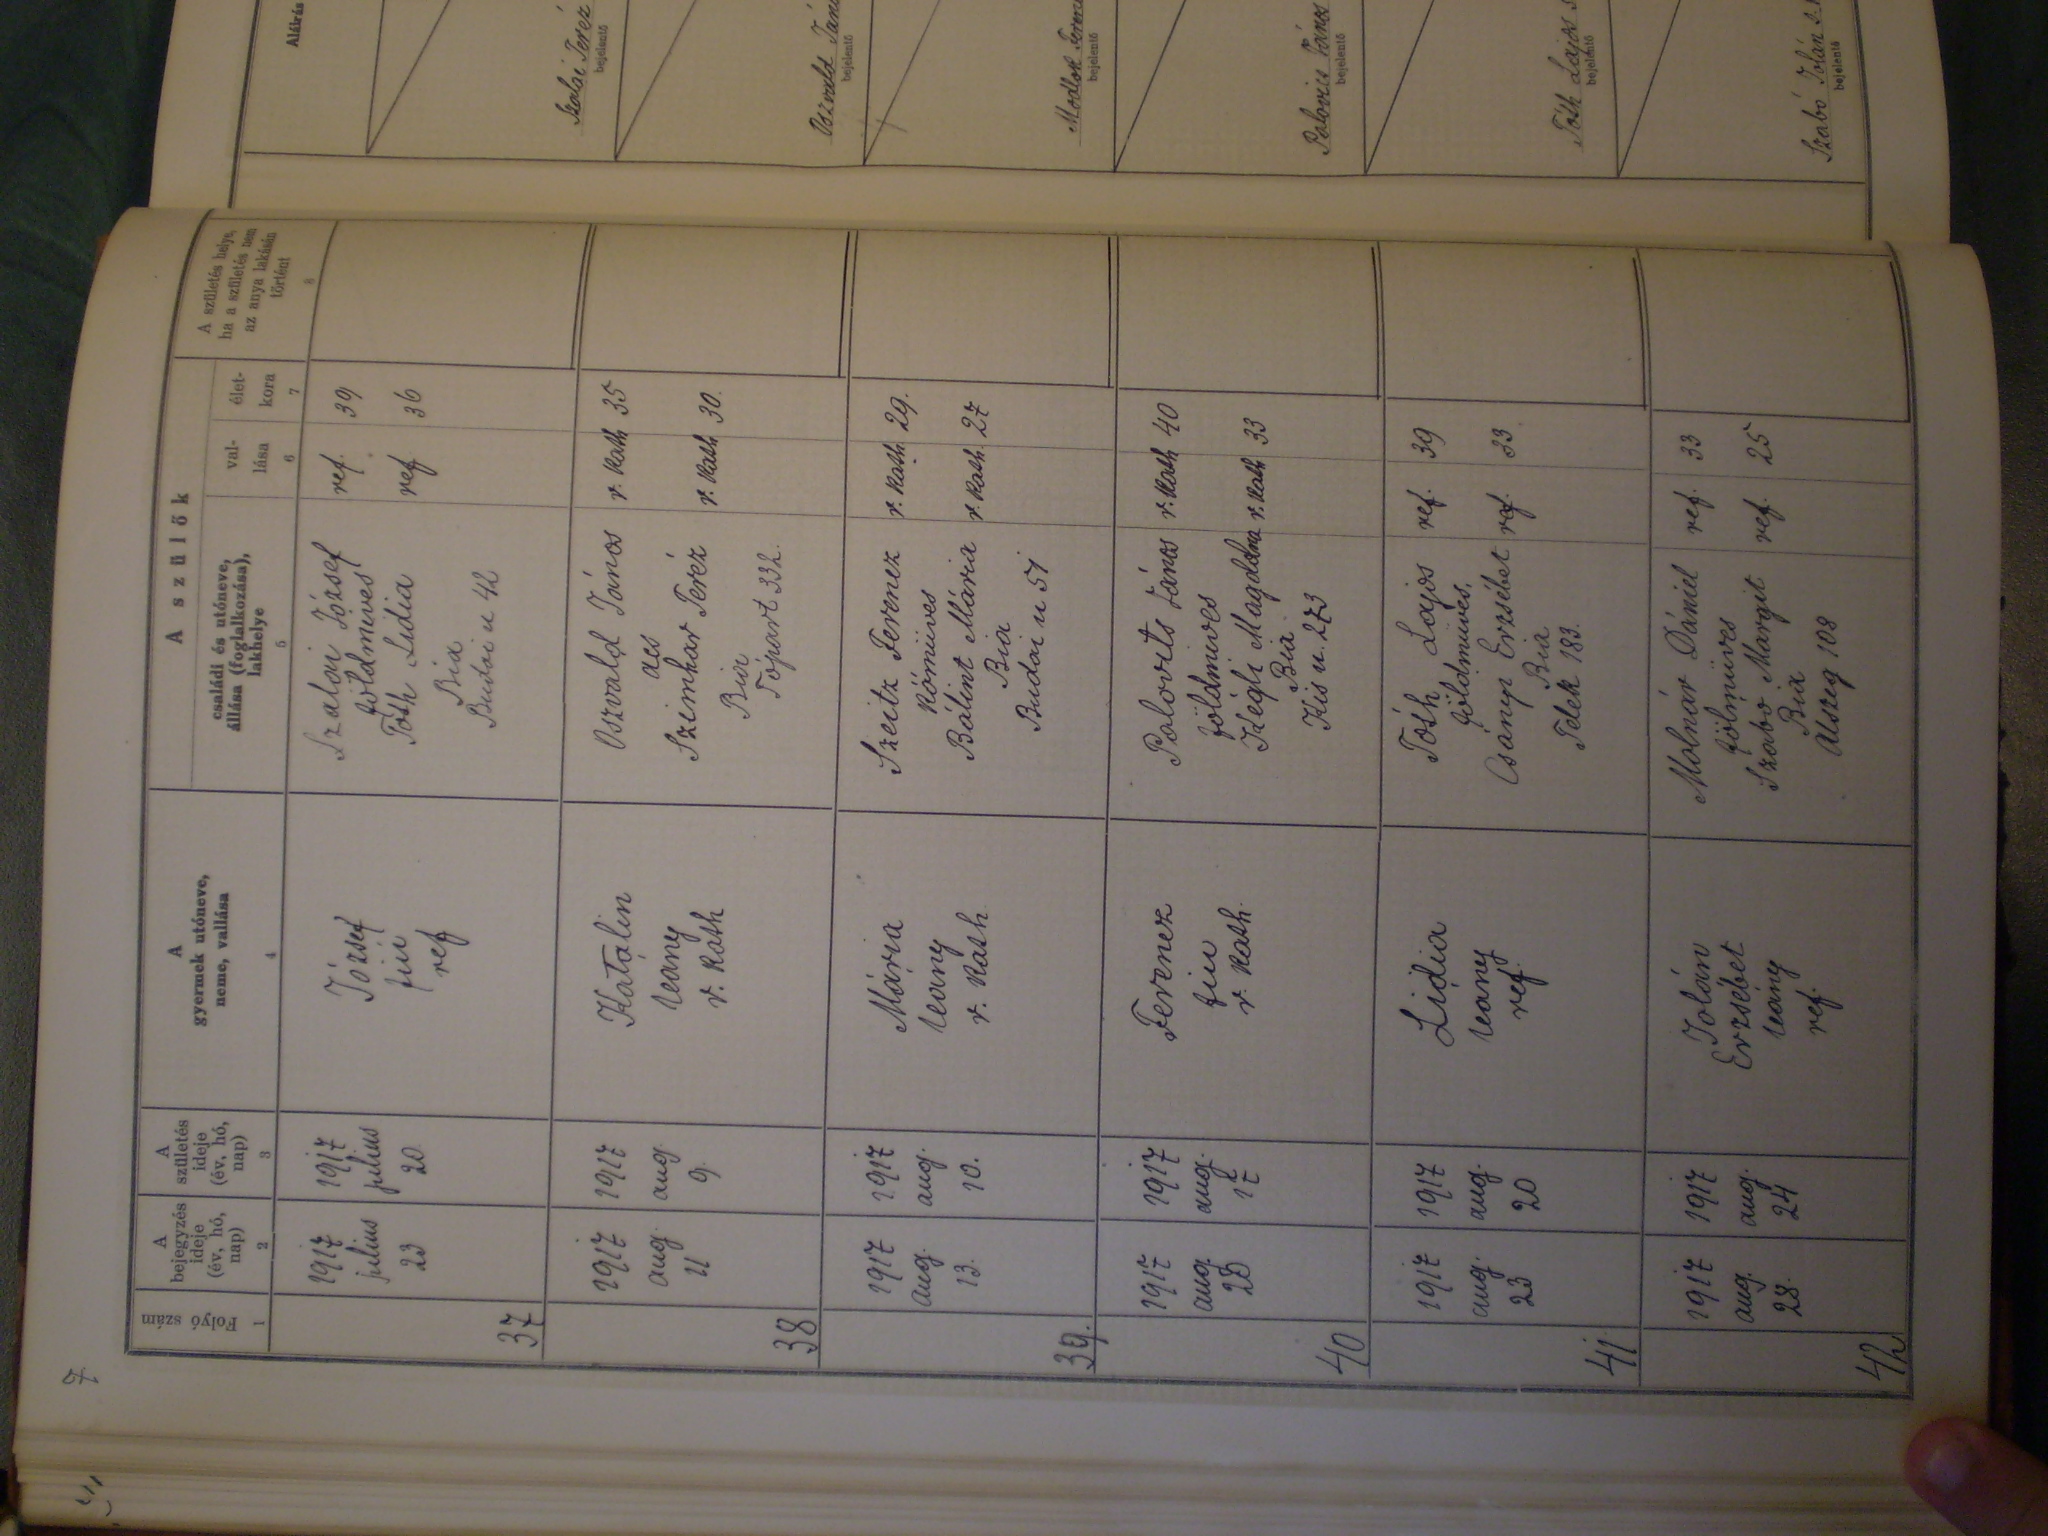 7
A szülők
1
Folyó szám
2
A
bejegyzés
ideje
(év, hó,
nap)
3
A
születés
ideje
(év, hó,
nap)
4
A
gyermek utóneve,
neme, vallása
5
családi és utóneve,
állása (foglalkozása),
lakhelye
6
val-
lása
7
élet-
kora
8
A születés helye,
ha a születés nem
az anya lakásán
történt
37
1917
julius
23
1917
julius
20
József
fiú
ref
Szalai József
földmüves
Tóth Lidia
Bia
Budai u 42
ref.
ref
39
36
38
1917
aug
11
1917
aug
9.
Katalin
leány
r. kath
Oszvald János
ács
Teréz
Bia
Tópart 332.
r. kath
r. kath
35
30.
39.
1917
aug.
13.
1917
aug.
10.
Mária
leány
r. kath
Szeitz Ferencz
kőmüves
Bálint Mária
Bia
Budai u 51
r. kath
r. kath
29.
27
40
1917
aug.
20
1917
aug.
17
Ferencz
fiu
r. kath.
Palovits János
földmüves
Magdolna
Bia
Kis u. 273
r. kath
r. kath
40
33
41.
1917
aug.
23
1917
aug.
20
Lidia
leány
ref.
Tóth Lajos
földmüves.
Csányi Erzsébet
Bia
Telek 183.
ref.
ref.
39
33
42
1917
aug.
28.
1917
aug.
24
Jolán
Erzsébet
leány
ref.
Molnár Dániel
fölmüves
Szabó Margit
Bia
Alszeg 108
ref.
ref.
33
25
Aláírás
Szalai Teréz
bejelentő
Oszvald
bejelentő
Modlok
bejelentő
Palovics János
bejelentő
Tóth Lajos
bejelentő
Szabó Jolán
bejelentő